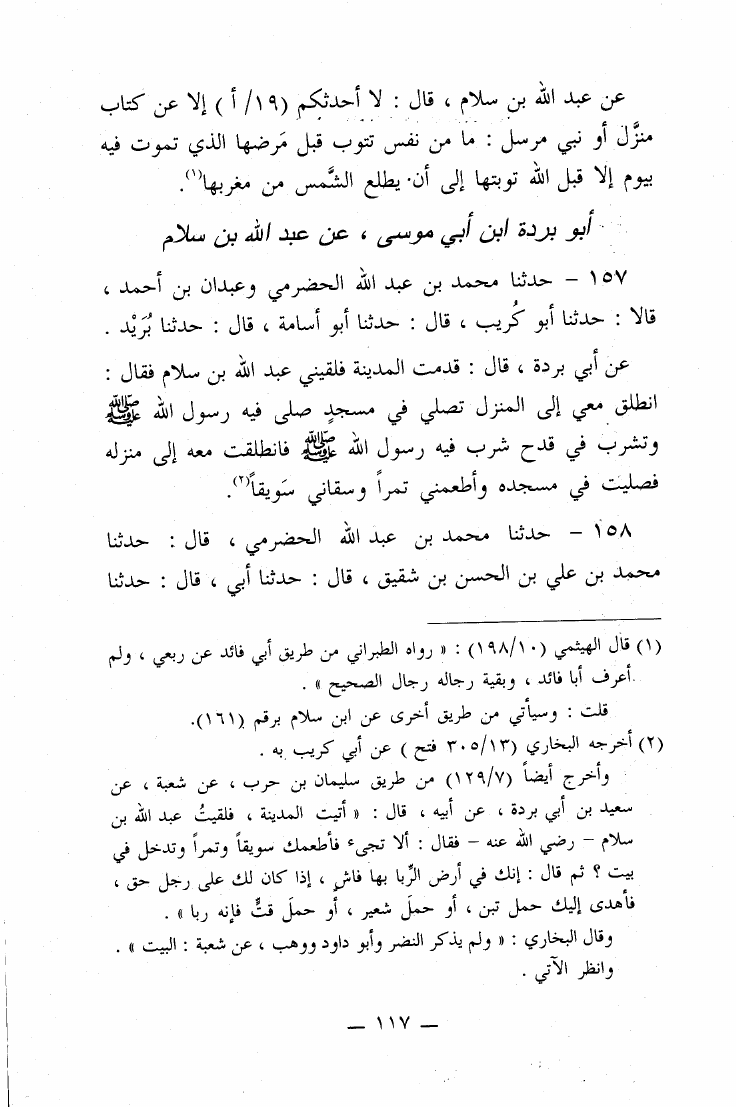 عن عبد الله بن سلام ، قال : لا أحدثكم (١٩/ أ ) إلا عن كتاب
منزَّل أو نبي مرسل : ما من نفس تتوب قبل مَرضها الذي تموت فيه
بيوم إلا قبل الله توبتها إلى أن يطلع الشَّمس من مغربها(١).
أبو بردة ابن أبي موسى ، عن عبد الله بن سلام
١٥٧ – حدثنا محمد بن عبد الله الحضرمي وعبدان بن أحمد ،
قالا : حدثنا أبو كُريب ، قال : حدثنا أبو أسامة ، قال : حدثنا بُرَيْد .
عن أبي بردة ، قال : قدمت المدينة فلقيني عبد الله بن سلام فقال :
انطلق معي إلى المنزل تصلي في مسجدٍ صلى فيه رسول الله ﷺ
وتشرب في قدح شرب فيه رسول الله ﷺ فانطلقت معه إلى منزله
فصليت في مسجده وأطعمني تمراً وسقاني سَويقاً(٢).
١٥٨ – حدثنا محمد بن عبد الله الحضرمي ، قال : حدثنا
محمد بن علي بن الحسن بن شقيق ، قال : حدثنا أبي ، قال : حدثنا
(١) قال الهيثمي (١٩٨/١٠) : « رواه الطبراني من طريق أبي فائد عن ربعي ، ولم
أعرف أبا فائد ، وبقية رجاله رجال الصحيح » .
قلت : وسيأتي من طريق أخرى عن ابن سلام برقم (١٦١).
(٢) أخرجه البخاري (٣٠٥/١٣ فتح ) عن أبي كريب به .
وأخرج أيضاً (١٢٩/٧) من طريق سليمان بن حرب ، عن شعبة ، عن
سعيد بن أبي بردة ، عن أبيه ، قال : « أتيت المدينة ، فلقيتُ عبد الله بن
سلام – رضي الله عنه – فقال : ألا تجيء فأطعمك سويقاً وتمراً وتدخل في
بيت ؟ ثم قال : إنك في أرض الرِّبا بها فاش ، إذا كان لك على رجل حق ،
فأهدى إليك حمل تبن ، أو حملَ شعير ، أو حملَ قتٍّ فإنه ربا » .
وقال البخاري : « ولم يذكر النضر وأبو داود ووهب ، عن شعبة : البيت » .
وانظر الآتي .
— ١١٧ —